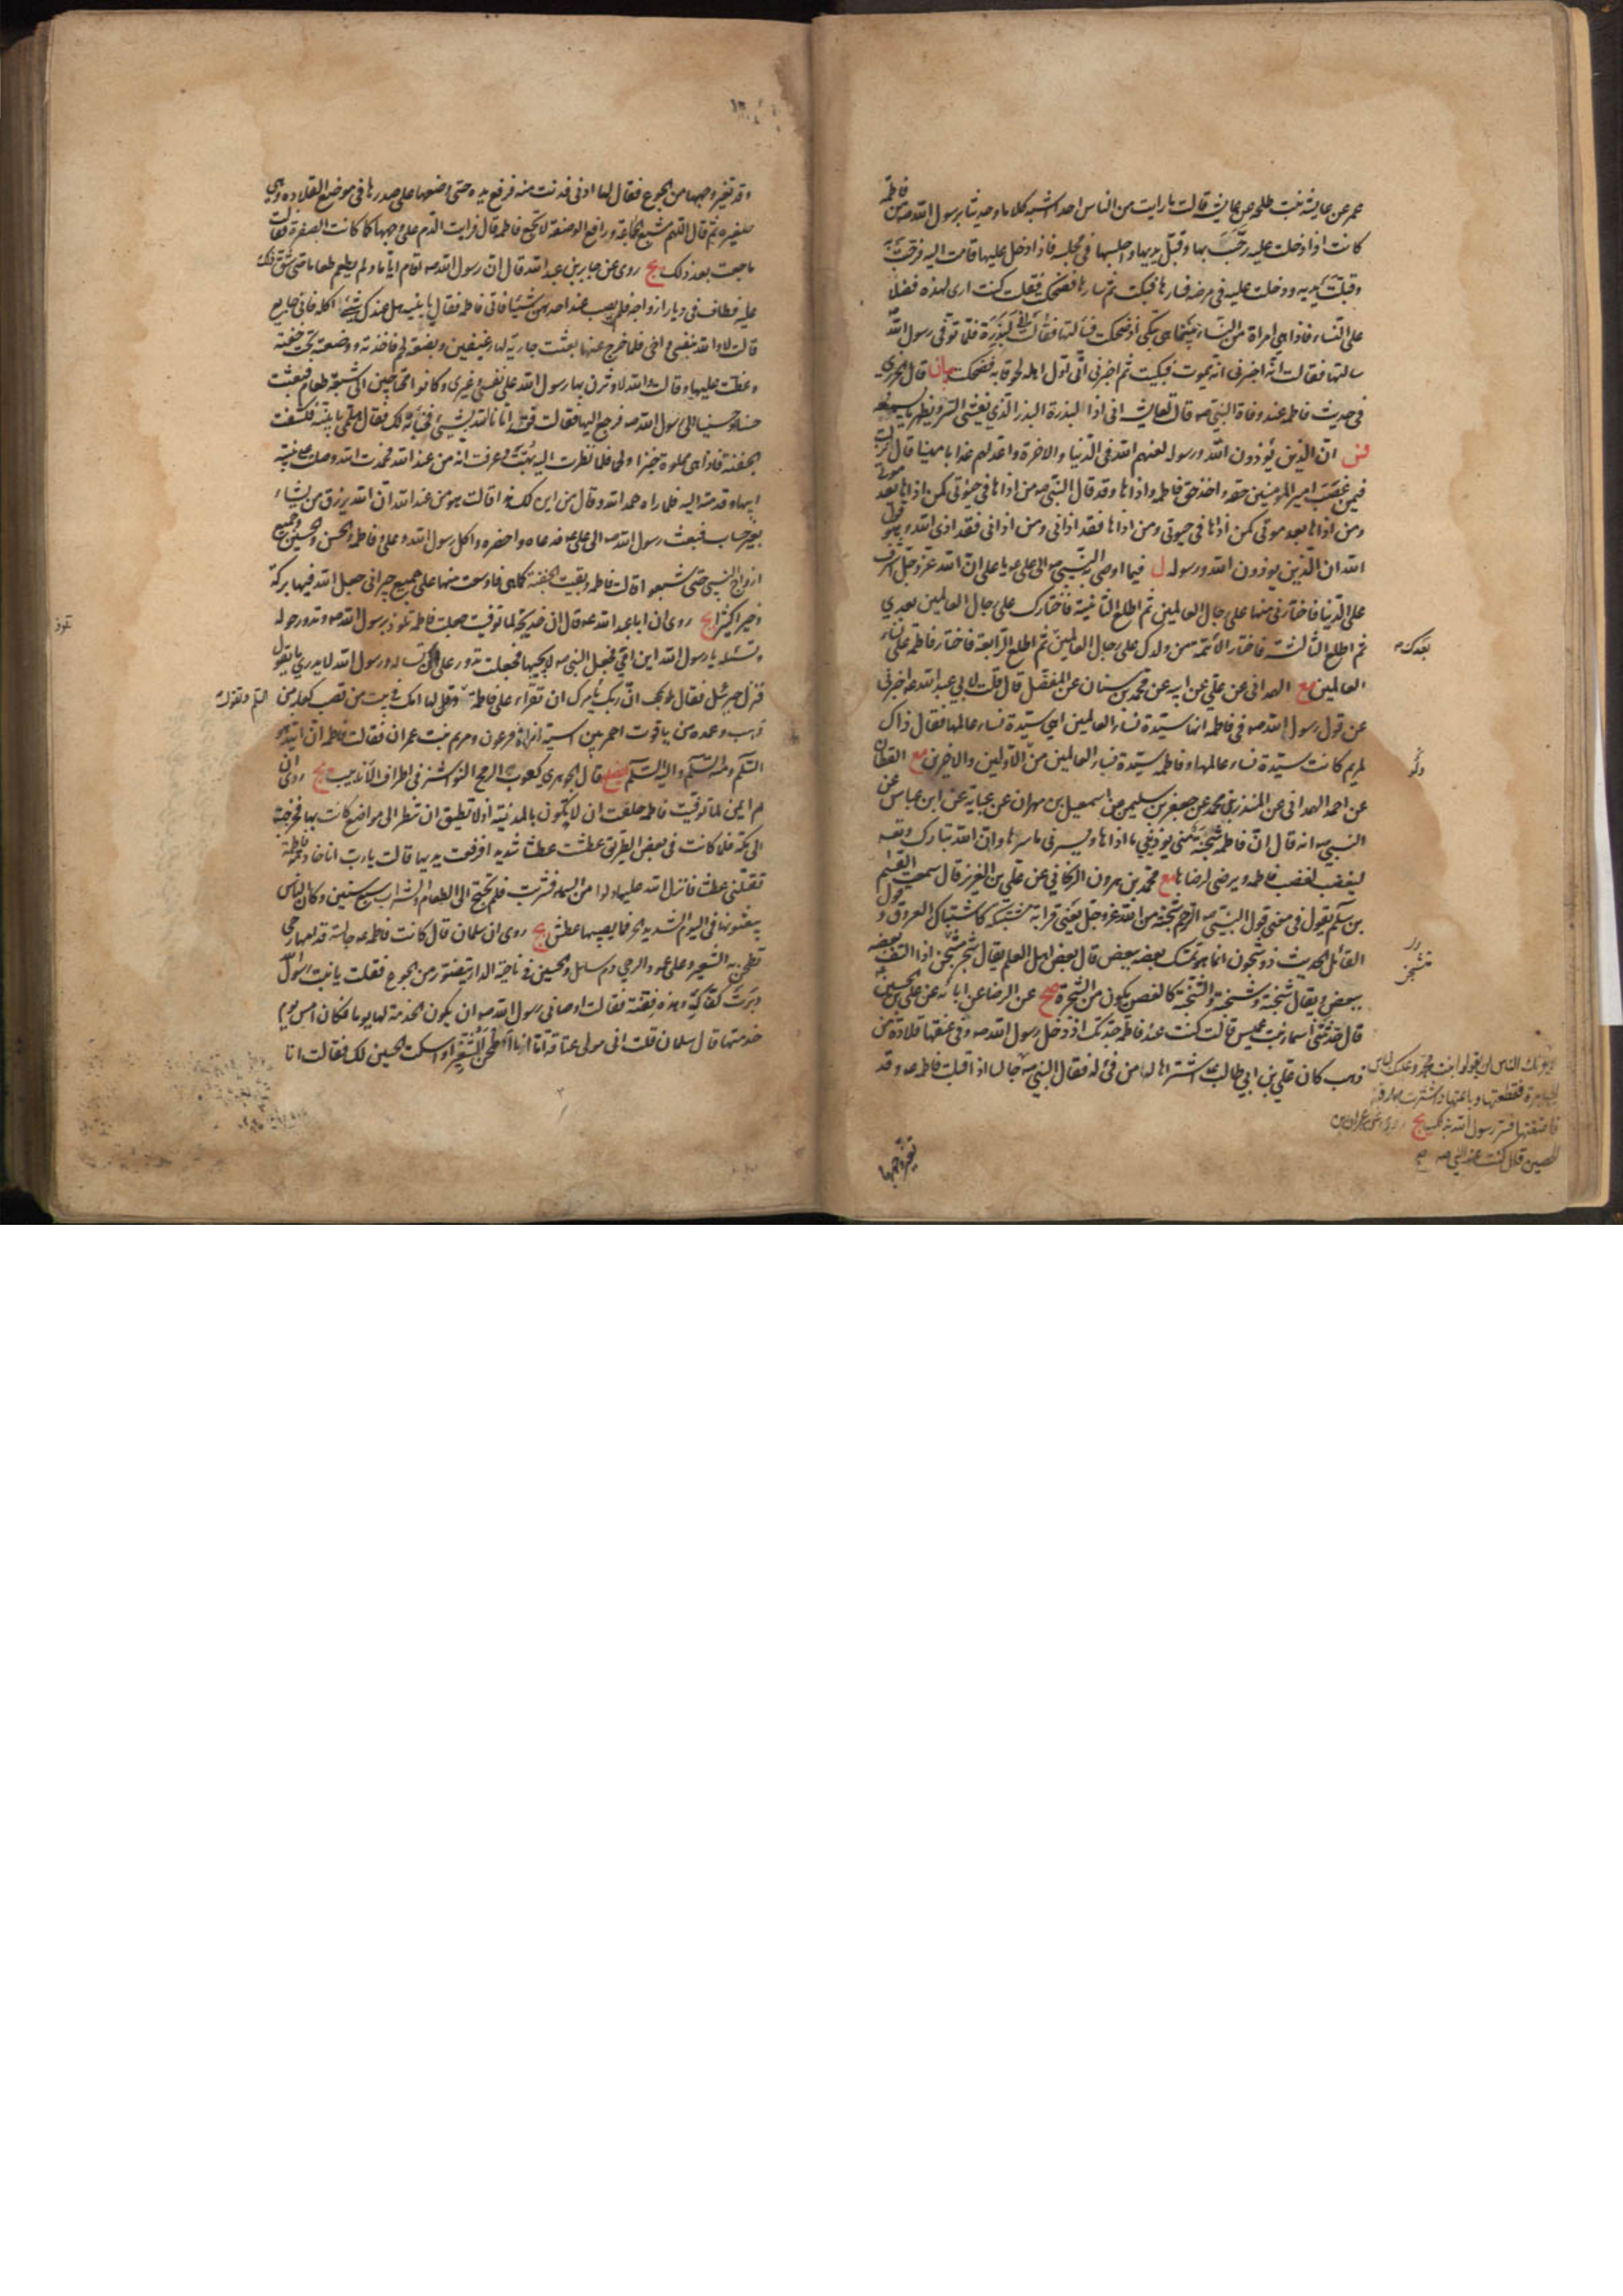 عمر عن عايشة بنت طلحة عن عايشة قالت ما رايت من الناس احدا اشبه كلاما وحديثا برسول الله ص من فاطمة
كانت اذا دخلت عليه رحّب بها وقبّل يديها واجلسها في مجلسه فاذا دخل عليها قامت اليه فرحّبت به
وقبّلت يديه ودخلت عليه في مرضه فسارّها فبكت ثم سارّها فضحكت فقلت كنت ارى لهذه فضلا
على النساء فاذا هي امراة من النساء بينما هي تبكي اذ ضحكت فسالتها فقالت اني اذا لبذرة فلما توفي رسول الله ص
سالتها فقالت انه اخبرني انه يموت فبكيت ثم اخبرني اني اول اهله لحوقا به فضحكت بيان قال الجزري
في حديث فاطمة عند وفاة النبي ص قالت لعايشة اني اذا لبذرة البذر الذي يفشي السر ويظهر ما يسمعه
فس ان الذين يؤذون الله ورسوله لعنهم الله في الدنيا والاخرة واعد لهم عذابا مهينا قال نزلت
فيمن غصب امير المؤمنين حقه واخذ حق فاطمة واذاها وقد قال النبي ص من اذاها في حيوتي كمن اذاها بعد موتي
ومن اذاها بعد موتي كمن اذاها في حيوتي ومن اذاها فقد اذاني ومن اذاني فقد اذى الله وهو قول
الله ان الذين يوذون الله ورسوله ل فيما اوصى به النبي ص الى علي ع يا علي ان الله عز وجل اشرف
على الدنيا فاختارني منها على رجال العالمين ثم اطلع الثانية فاختارك على رجال العالمين بعدي
ثم اطلع الثالثة فاختار الائمة من ولدك على رجال العالمين ثم اطلع الرابعة فاختار فاطمة على نساء
بعدك ص
العالمين مع الهمداني عن علي عن ابيه عن محمد بن سنان عن المفضل قال قلت لابي عبد الله ع اخبرني
عن قول رسول الله ص في فاطمة انها سيدة نساء العالمين اهي سيدة نساء عالمها فقال ذاك
لمريم كانت سيدة نساء عالمها وفاطمة سيدة نساء العالمين من الاولين والاخرين مع القطان
عن احمد الهمداني عن المنذر بن محمد عن جعفر بن سليمن عن اسمعيل بن مهران عن عباية عن ابن عباس عن
النبي ص انه قال ان فاطمة شجنة مني يوذيني ما اذاها ويسرني ما سرها وان الله تبارك وتعه
ليغضب لغضب فاطمة ويرضى لرضاها مع محمد بن هرون الزنجاني عن علي بن عبد العزيز قال سمعت القسم
بن سلّم يقول في معنى قول النبي ص الرحم شجنة من الله عز وجل يعني قرابة مشتبكة كاشتباك العروق وقول
القائل الحديث ذو شجون انما هو تمسك بعضه ببعض قال بعض اهل العلم يقال شجر متشجن اذا التف بعضه
ببعض ويقال شجنة وشجنة والشجنة كالغصن يكون من الشجرة صح عن الرضا عن ابائه عن علي بن الحسين ع
قال حدثتني اسماء بنت عميس قالت كنت عند فاطمة جدتك اذ دخل رسول الله ص وفي عنقها قلادة من
ذهب كان علي بن ابي طالب ع اشتراها لها من فئ له فقال النبي ص جالسا اذ اقبلت فاطمة ع وقد
لا يغرنك الناس ان يقولوا ابنت محمد وعليك لباس
الجبابرة فقطعتها وباعتها واشترت بها رقبة
فاعتقتها فسر رسول الله بذلك يج روي عن عمران بن
الحصين قال كنت عند النبي ص صح
تغير وجهها
وقد تغير وجهها من الجوع فقال لها ادني فدنت منه فرفع يده حتى وضعها على صدرها في موضع القلادة وهي
صغيرة ثم قال اللهم مشبع الجاعة ورافع الوضعة لا تجع فاطمة قال فرايت الدم على وجهها كما كانت الصفرة فقالت
ما جعت بعد ذلك يج روى عن جابر بن عبد الله قال ان رسول الله ص اقام اياما ولم يطعم طعاما حتى شق ذلك
عليه فطاف في ديار ازواجه فلم يصب عند احديهن شيئا فاتى فاطمة فقال يا بنية هل عندك شئ اكله فاني جايع
قالت لا والله بنفسي واخي فلما خرج عنها بعثت جارية لها رغيفين وبضعة لحم فاخذته ووضعته تحت جفنة
وغطت عليها وقالت والله لاوثرن بها رسول الله على نفسي وغيري وكانوا محتاجين الى شبعة طعام فبعثت
حسنا وحسينا الى رسول الله ص فرجع اليها فقالت قد اتانا الله بشيئ فخباته لك فقال هلمي يا بنية فكشفت
الجفنة فاذا هي مملوة خبزا ولحما فلما نظرت اليه بهتت وعرفت انه من عند الله فحمدت الله وصلت على نبيه
ابيها وقدمته اليه فلما راه حمد الله وقال من اين لك هذا قالت هو من عند الله ان الله يرزق من يشاء
بغير حساب فبعث رسول الله ص الى علي ع فدعاه واحضره واكل رسول الله وعلي وفاطمة والحسن والحسين وجميع
ازواج النبي حتى شبعوا قالت فاطمة وبقيت الجفنة كما هي فاوسعت منها على جميع جيراني جعل الله فيها بركة
وخيرا كثيرا يج روى ان ابا عبد الله ع قال ان خديجة لما توفيت جعلت فاطمة تلوذ برسول الله ص وتدور حوله
وتسئله يا رسول الله اين امي فجعل النبي ص لا يجيبها فجعلت تدور على من تساله ورسول الله لا يدري ما يقول
فنزل جبرئيل فقال ان ربك يامرك ان تقرأ على فاطمة السلم وتقول لها امك في بيت من قصب كعابه من
ذهب وعمده من ياقوت احمر بين اسية امراة فرعون ومريم بنت عمران فقالت فاطمة ان الله هو
السلم ومنه السلم واليه السلم ايضاح قال الجوهري كعوب الرمح النواشز في اطراف الانابيب يج روى ان
ام ايمن لما توفيت فاطمة حلفت ان لا تكون بالمدينة اذ لا تطيق ان تنظر الى مواضع كانت بها فخرجت
الى مكة فلما كانت في بعض الطريق عطشت عطشا شديدا فرفعت يديها قالت يا رب انا خادمة فاطمة
تقتلني عطشا فانزل الله عليها دلوا من السماء فشربت فلم تحتج الى الطعام والشراب سبع سنين وكان الناس
يبعثونها في اليوم الشديد الحر فما يصيبها عطش يج روى ان سلمان قال كانت فاطمة ع جالسة قدامها رحى
تطحن بها الشعير وعلى عمود الرحى دم سايل والحسين في ناحية الدار يتضور من الجوع فقلت يا بنت رسول الله
دبرت كفاك وهذه فضة فقالت اوصاني رسول الله ص ان يكون الخدمة لها يوما فكان امس يوم
خدمتها قال سلمان قلت اني مولى عتاقة اما انا اطحن الشعير او اسكت الحسين لك فقالت انا